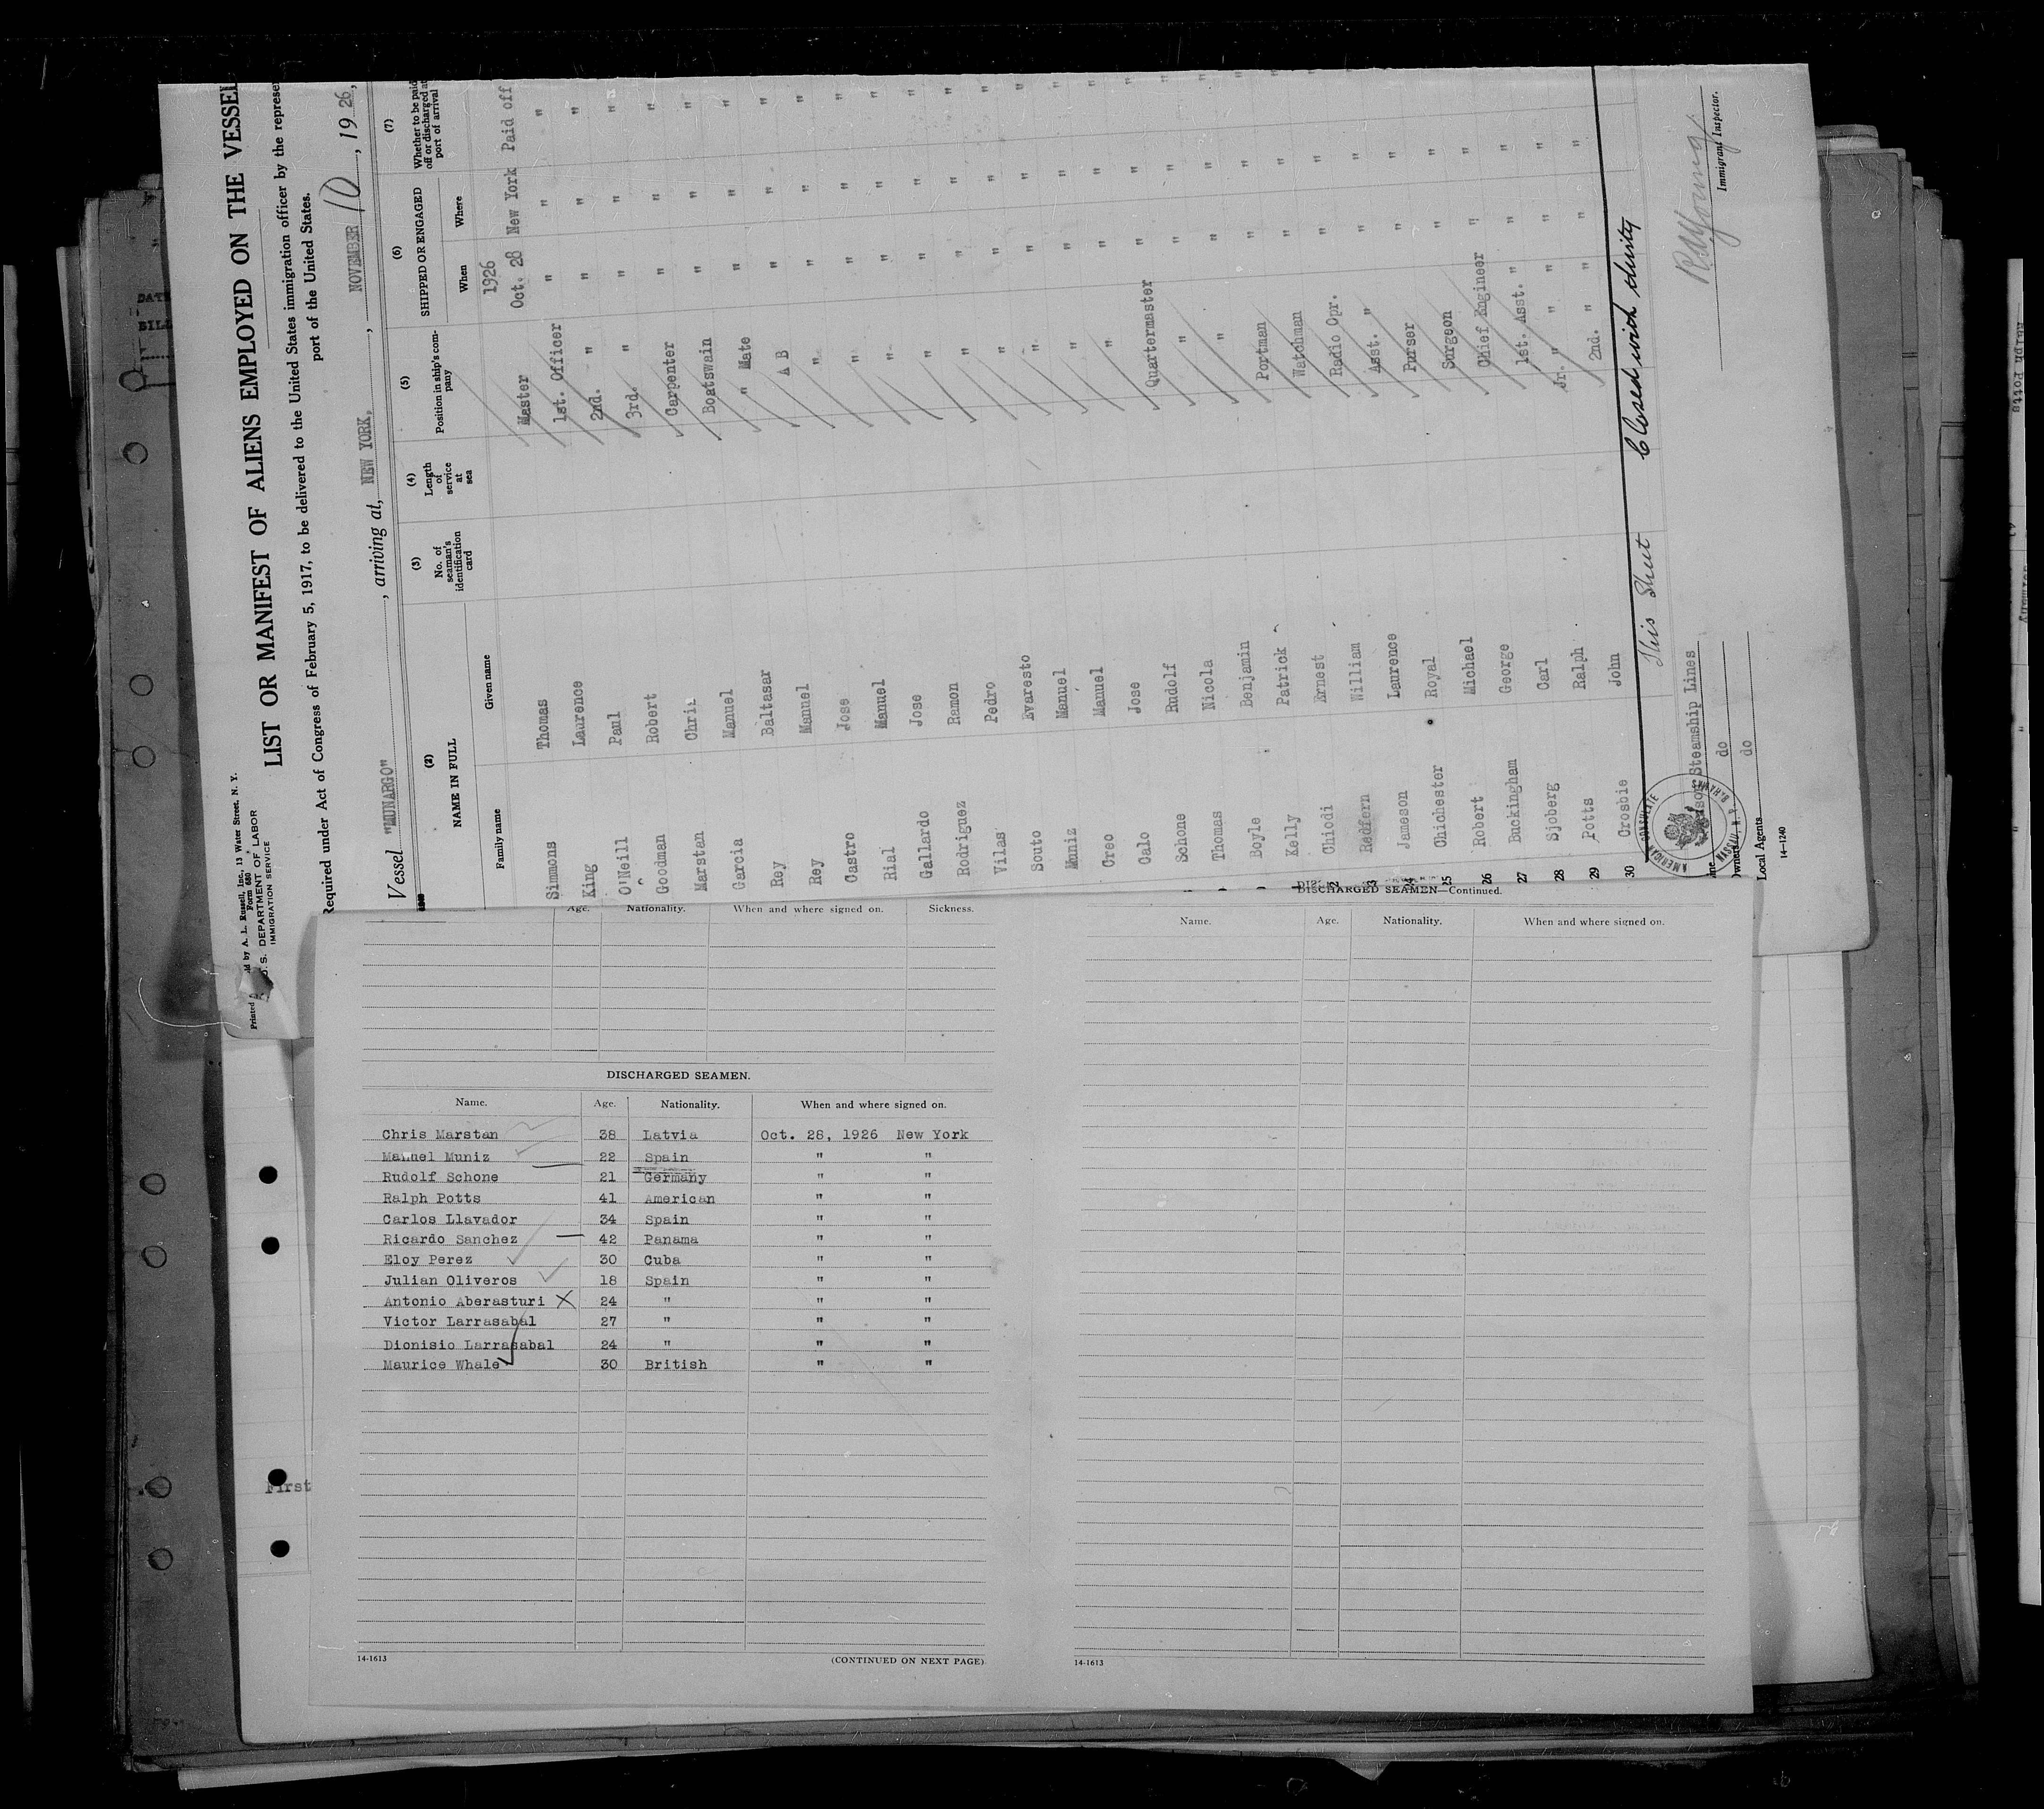 Printed by A. L. Russell, Inc., 13 Water Street, N. Y.
Form 680
U. S. DEPARTMENT OF LABOR
IMMIGRATION SERVICE
LIST OR MANIFEST OF ALIENS EMPLOYED ON THE VESSEL
Required under Act of Congress of February 5, 1917, to be delivered to the United States immigration officer by the represe
port of the United States.
Vessel "MUNARGO", arriving at, NEW YORK, NOVEMBER 10, 1926,
(2) (3) (4) (5) (6) (7)
NAME IN FULL
Family name Given name
No. of seaman's identification card
Length of service at sea
Position in ship's company
SHIPPED OR ENGAGED
When Where
Whether to be paid off or discharged at port of arrival
1926
Simmons Thomas Master Oct. 28 New York Paid off
King Laurence 1st. Officer " " "
O'Neill Paul 2nd. " " " "
Goodman Robert 3rd. " " " "
Marstan Chris Carpenter " " "
Garcia Manuel Boatswain " " "
Rey Baltasar " Mate " " "
Rey Manuel A B " " "
Castro Jose " " " "
Rial Manuel " " " "
Gallardo Jose " " " "
Rodriguez Ramon " " " "
Vilas Pedro " " " "
Souto Evaresto " " " "
Muniz Manuel " " " "
Creo Manuel " " " "
Calo Jose " " " "
Schone Rudolf Quartermaster " " "
Thomas Nicola " " " "
Boyle Benjamin " " " "
Kelly Patrick Portman " " "
Chiodi Ernest Watchman " " "
23 Redfern William Radio Opr. " " "
24 Jameson Laurence Asst. " " " "
25 Chichester Royal Purser " " "
26 Robert Michael Surgeon " " "
27 Buckingham George Chief Engineer " " "
28 Sjoberg Carl 1st. Asst. " " " "
29 Potts Ralph Jr. " " " " "
30 Crosbie John 2nd. " " " "
This Sheet Closed with thirty
R A Young
Immigrant Inspector.
Steamship Lines
do
do
Local Agents
14-1240
AMERICAN CONSULATE
NASSAU, N. P. BAHAMAS
Age. Nationality. When and where signed on. Sickness.
DISCHARGED SEAMEN.
Name. Age. Nationality. When and where signed on.
Chris Marstan 38 Latvia Oct. 28, 1926 New York
Manuel Muniz 22 Spain " "
Rudolf Schone 21 Germany " "
Ralph Potts 41 American " "
Carlos Llavador 34 Spain " "
Ricardo Sanchez 42 Panama " "
Eloy Perez 30 Cuba " "
Julian Oliveros 18 Spain " "
Antonio Aberasturi X 24 " " "
Victor Larrasabal 27 " " "
Dionisio Larrasabal 24 " " "
Maurice Whale 30 British " "
14-1613
(CONTINUED ON NEXT PAGE)
DISCHARGED SEAMEN—Continued.
Name. Age. Nationality. When and where signed on.
14-1613
First
DATE
BILL
Ralph Potts